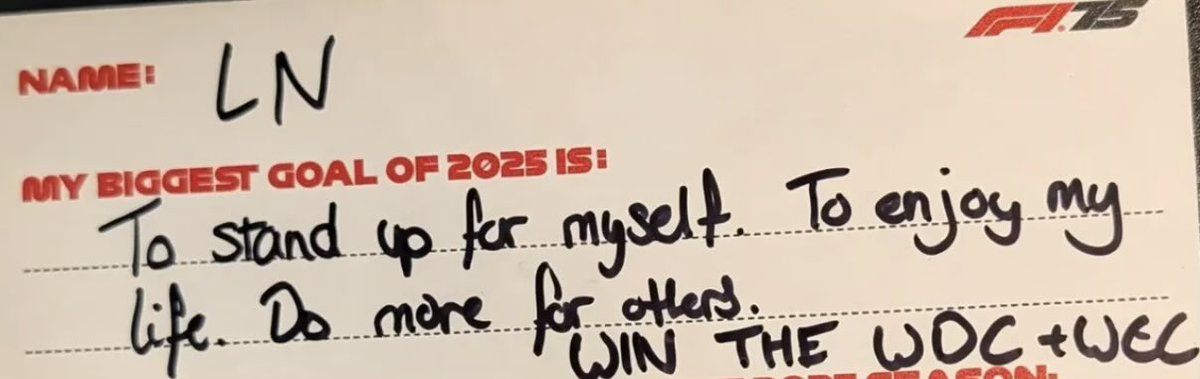 F1.75
NAME: LN
MY BIGGEST GOAL OF 2025 IS:
To stand up for myself. To enjoy my
life. Do more for others.
WIN THE WDC + WCC
SEASON: